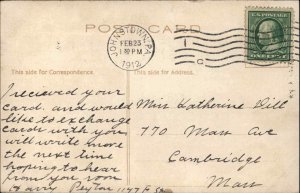 POST CARD
JOHNSTOWN, PA.
FEB 23
1 30 PM
1912
U.S. POSTAGE
ONE CENT
This side for Correspondence.
This side for Address.
I recieved your
card. and would
like to exchange
cards with you
will write more
the next time
hoping to hear
from you soon
Harry Peyton
Miss Katherine Dill
770 Mass Ave
Cambridge
Mass